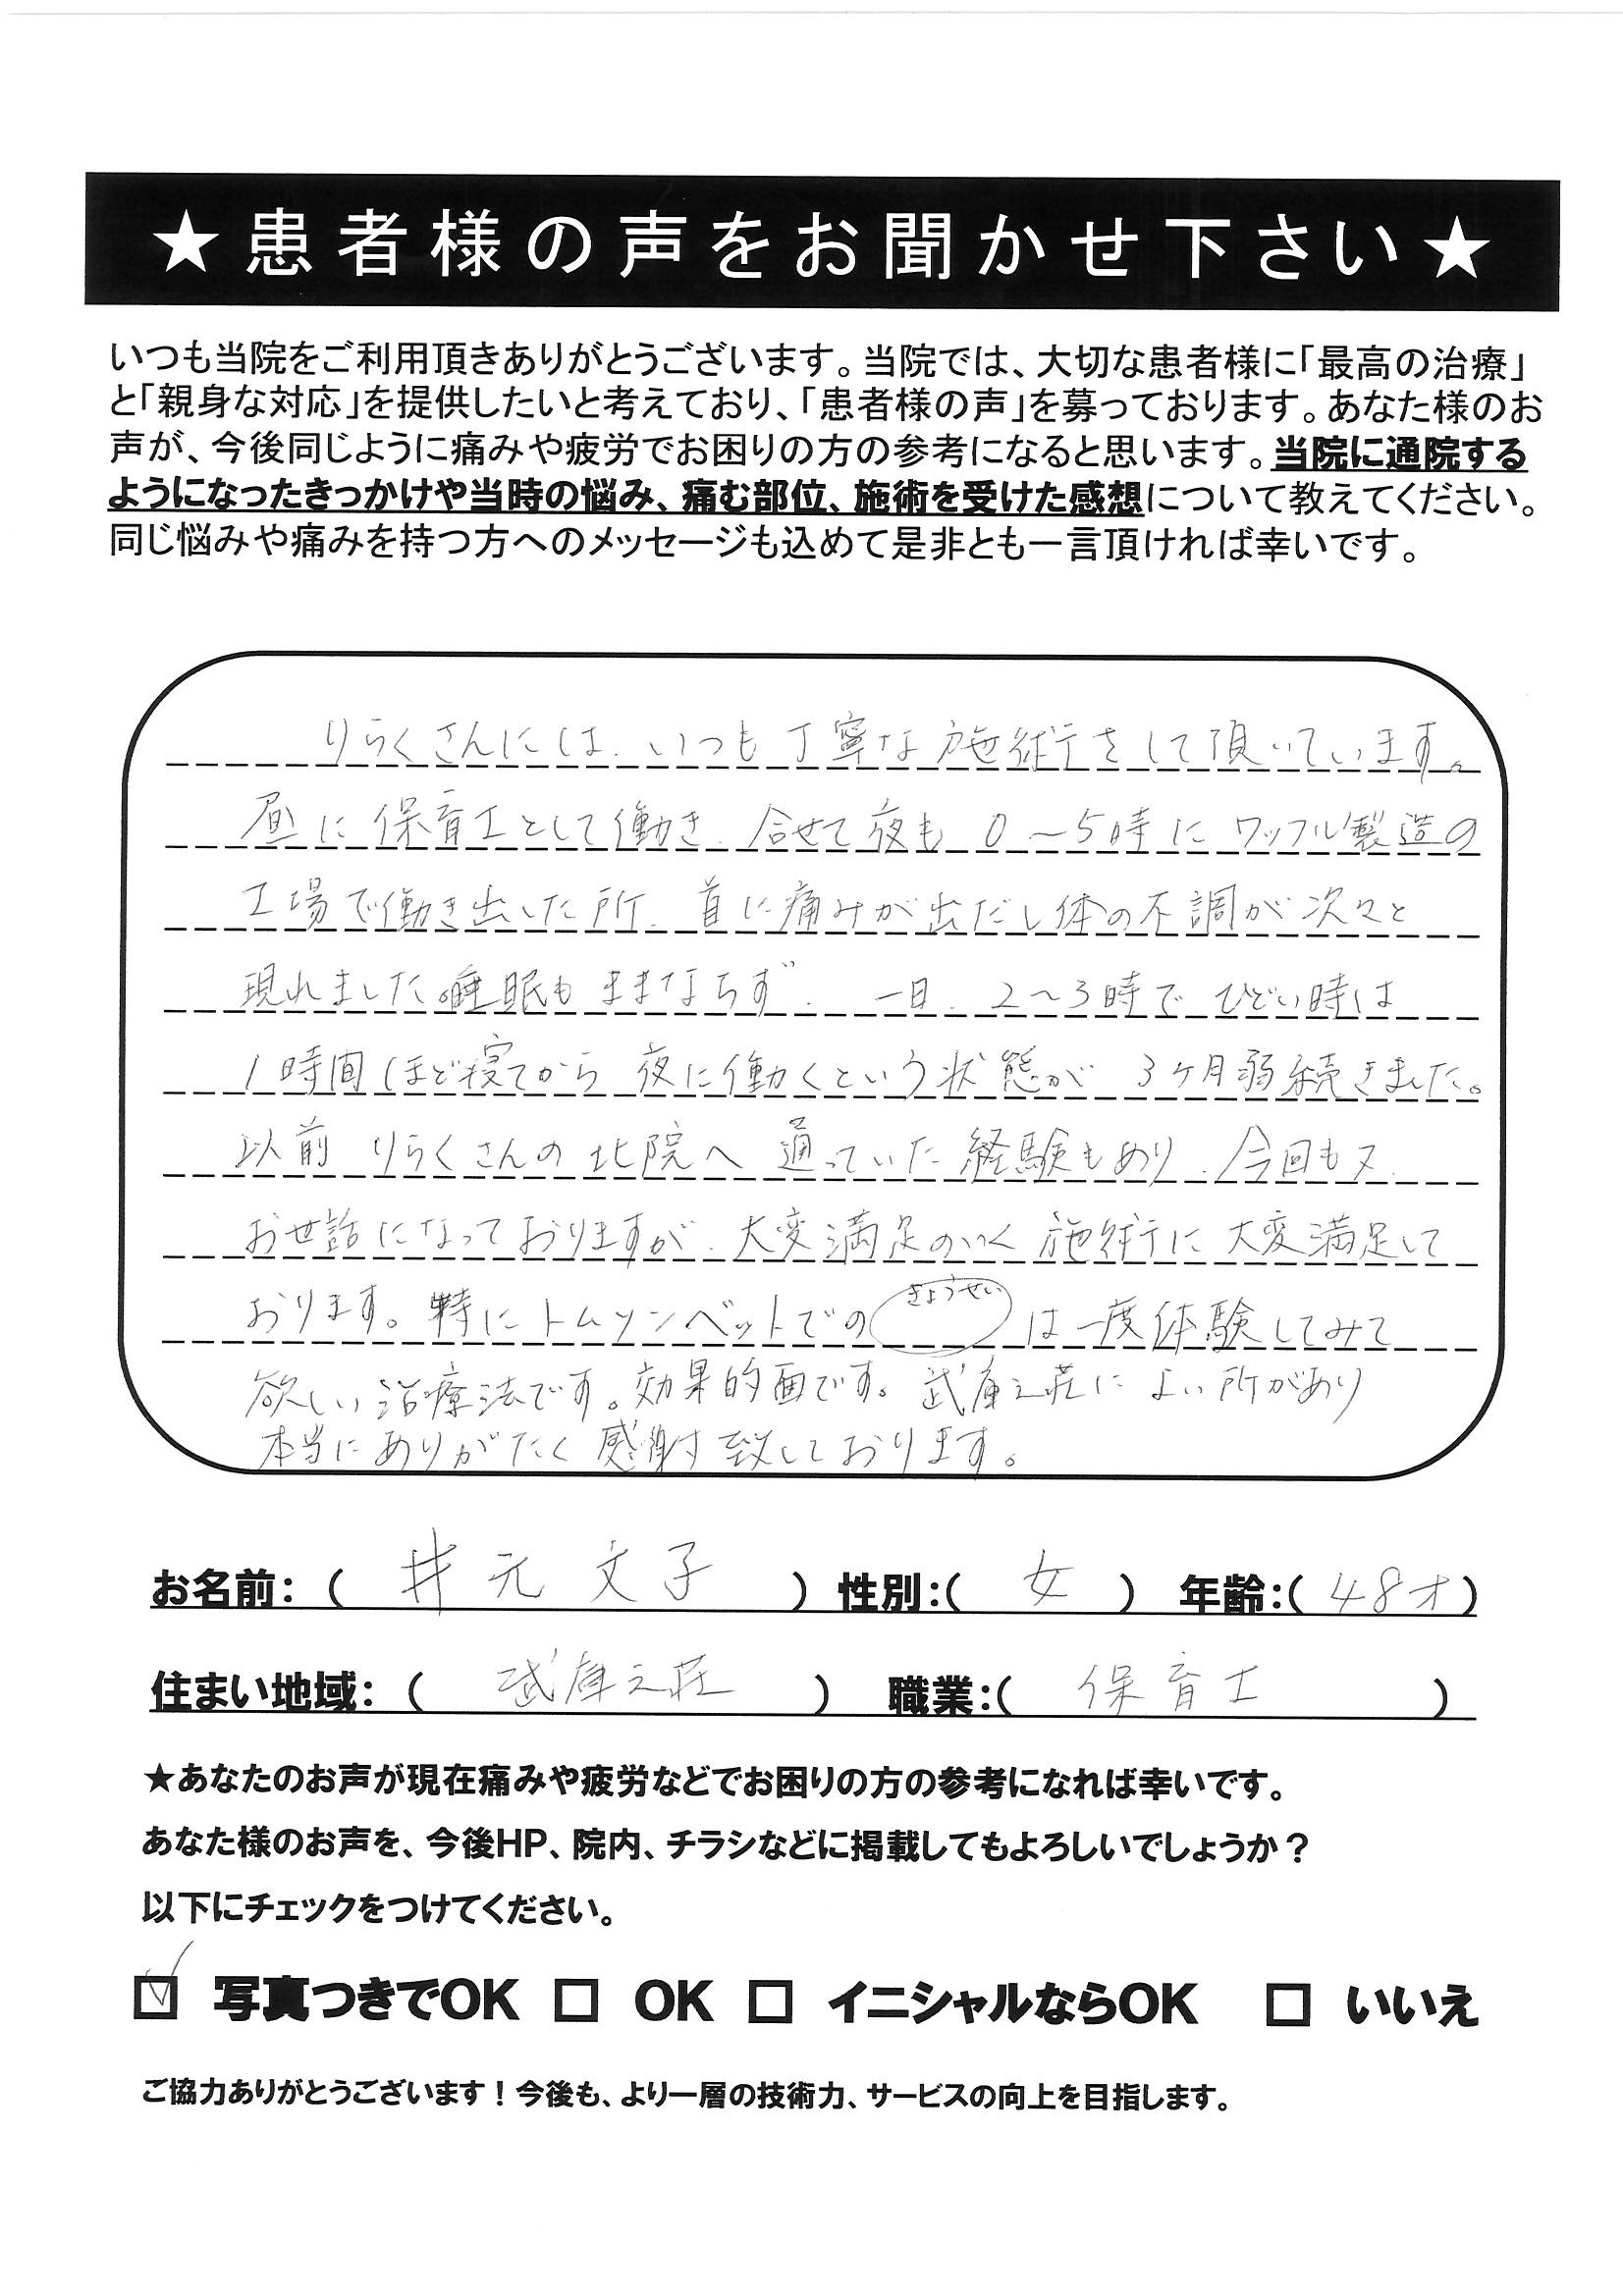 ★患者様の声をお聞かせ下さい★
いつも当院をご利用頂きありがとうございます。当院では、大切な患者様に「最高の治療」
と「親身な対応」を提供したいと考えており、「患者様の声」を募っております。あなた様のお
声が、今後同じように痛みや疲労でお困りの方の参考になると思います。当院に通院する
ようになったきっかけや当時の悩み、痛む部位、施術を受けた感想について教えてください。
同じ悩みや痛みを持つ方へのメッセージも込めて是非とも一言頂ければ幸いです。
りらくさんには、いつも丁寧な施術をして頂いています。
昼に保育士として働き、合せて夜も0〜5時にワッフル製造の
工場で働き出した所、首に痛みが出だし体の不調が次々と
現れました。睡眠もままならず、一日、2〜3時で ひどい時は
1時間ほど寝てから 夜に働くという状態が 3ケ月弱続きました。
以前 りらくさんの北院へ 通っていた経験もあり、今回も又、
お世話になっておりますが、大変満足のいく施術に大変満足して
おります。特にトムソンベットでの(きょうせい)は一度体験してみて
欲しい治療法です。効果的面です。武庫之荘によい所があり
本当にありがたく感謝致しております。
お名前:( 井元 文子 ) 性別:( 女 ) 年齢:( 48才 )
住まい地域:( 武庫之荘 ) 職業:( 保育士 )
★あなたのお声が現在痛みや疲労などでお困りの方の参考になれば幸いです。
あなた様のお声を、今後HP、院内、チラシなどに掲載してもよろしいでしょうか？
以下にチェックをつけてください。
☑ 写真つきでOK □ OK □ イニシャルならOK □ いいえ
ご協力ありがとうございます！今後も、より一層の技術力、サービスの向上を目指します。